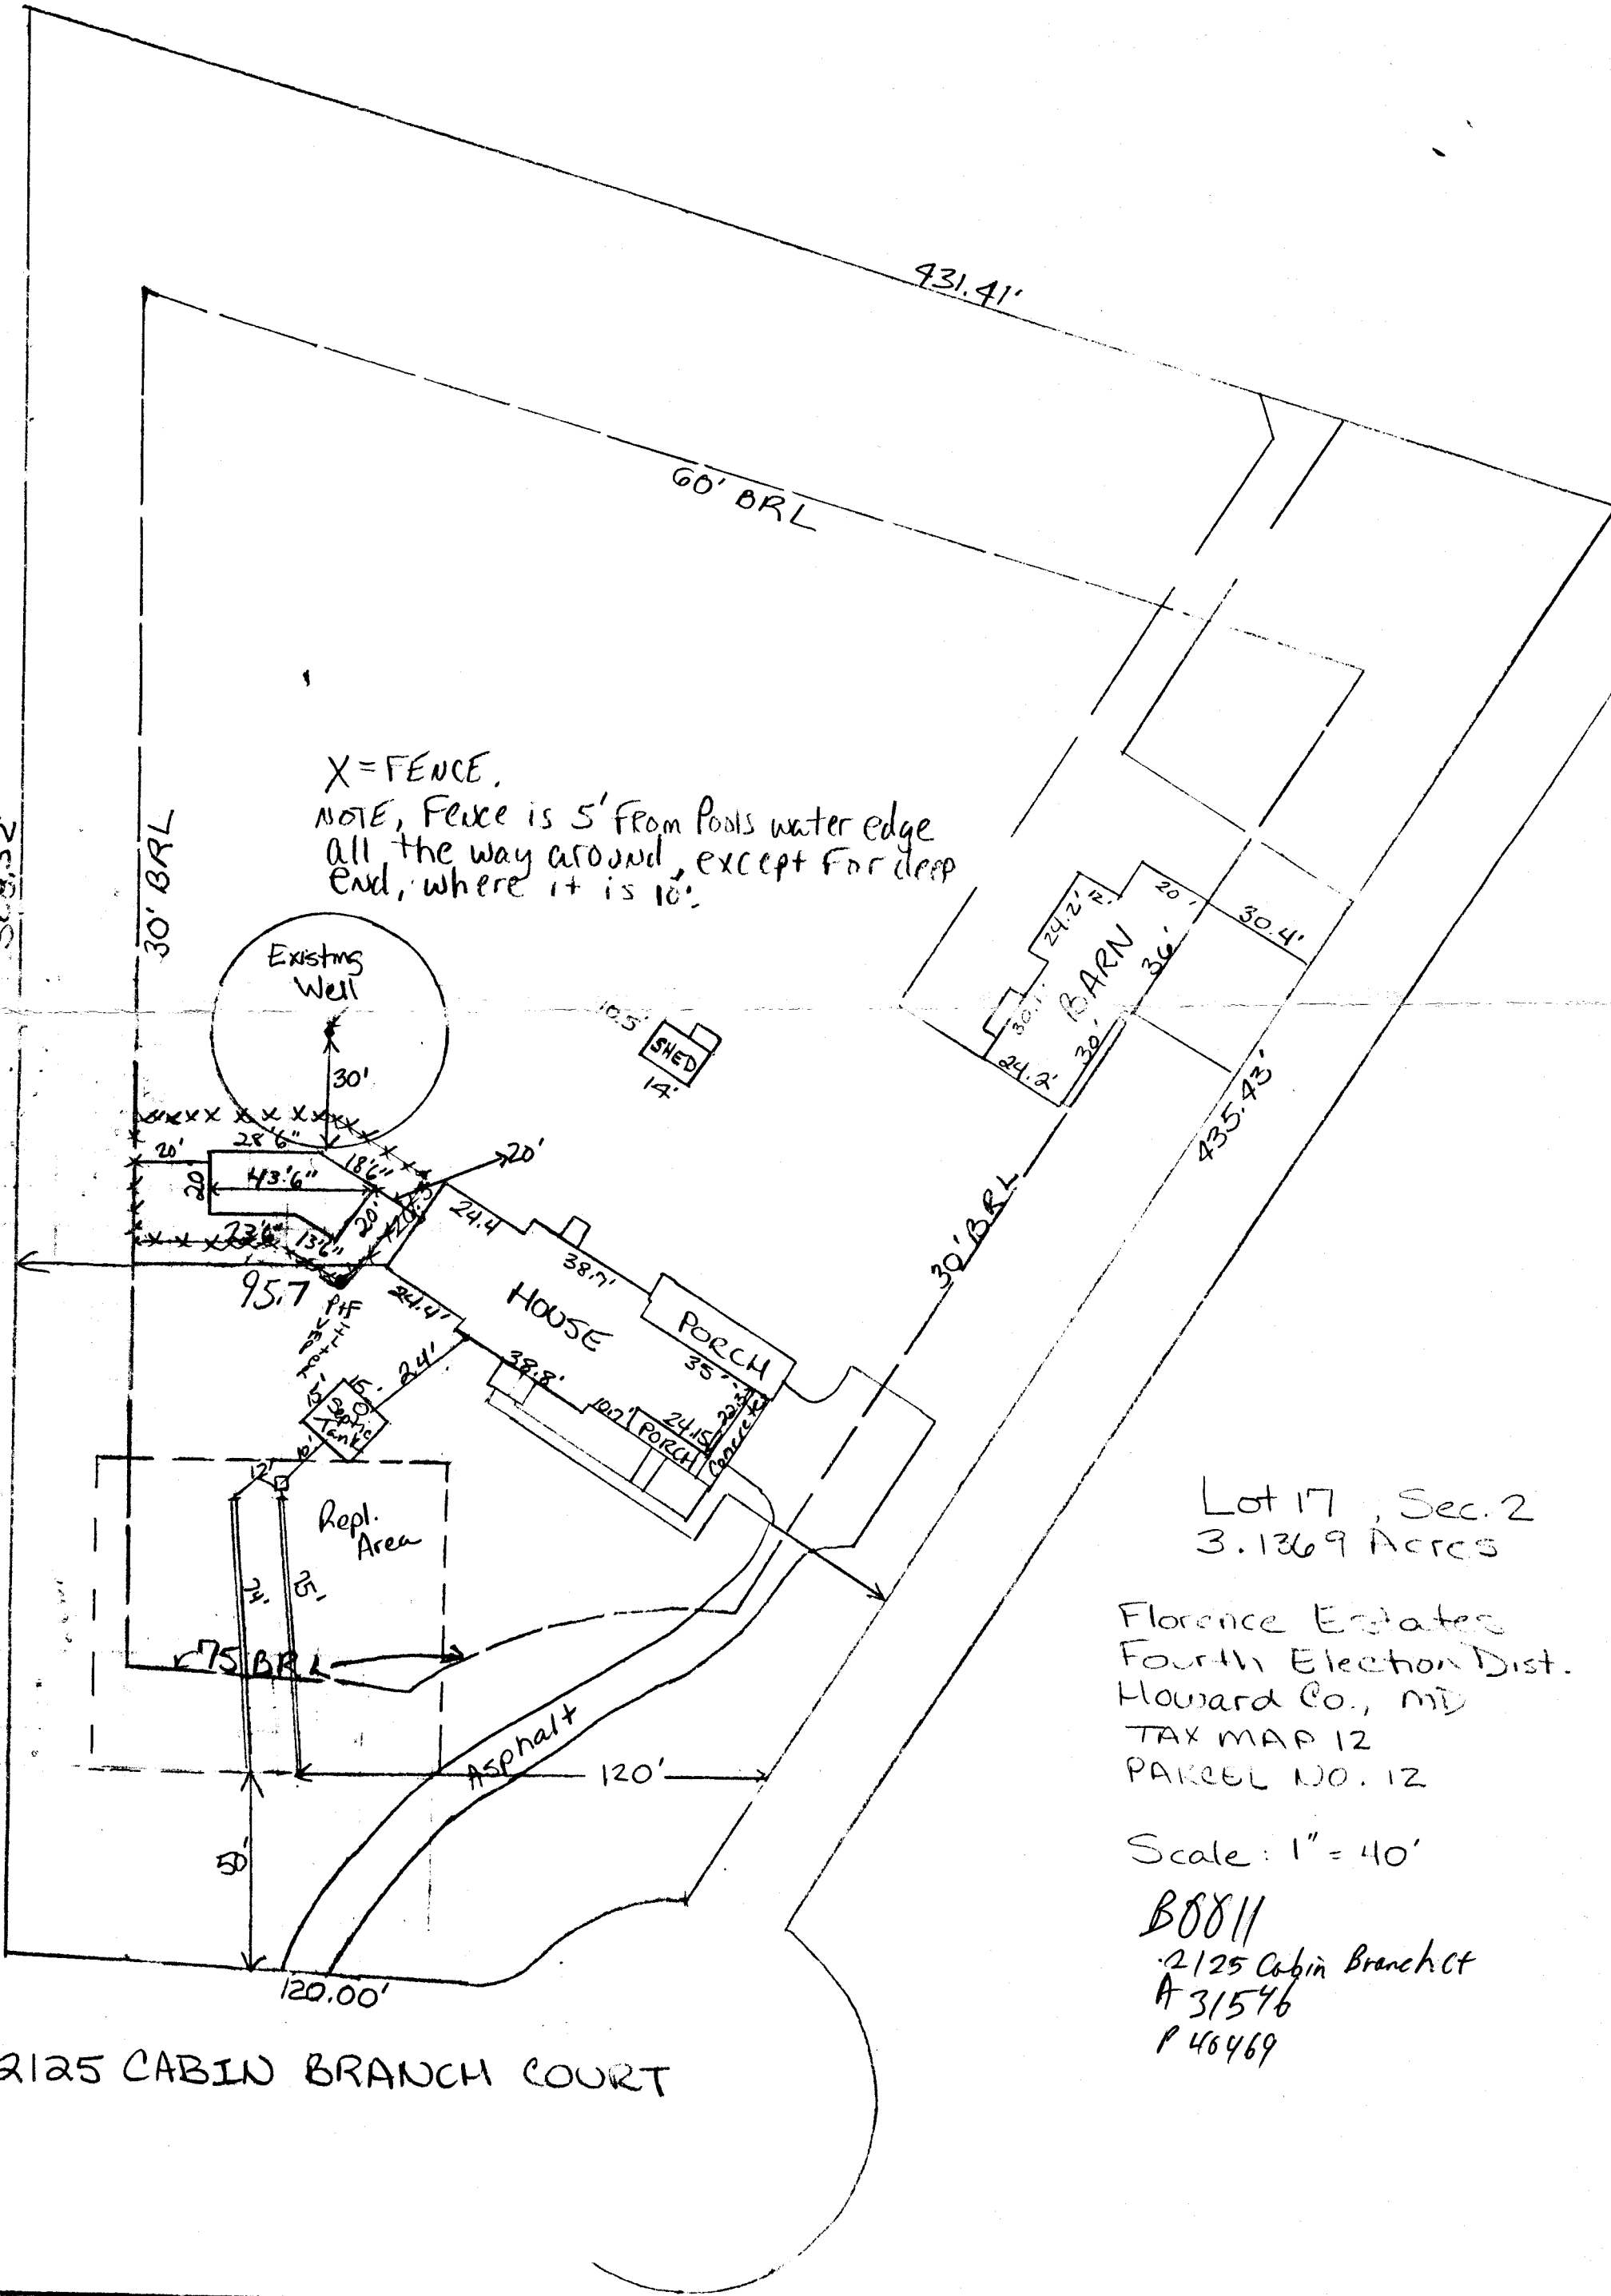 431.41'
60' BRL
30' BRL
X = FENCE.
NOTE, Fence is 5' From Pools water edge
all the way around, except For deep
end, where it is 10'.
Existing
Well
30'
10.5'
SHED
14'
24.2'
12'
20'
30.4'
BARN
36'
30.1'
24.2'
30'
435.43'
30' BRL
20'
28'6"
18'6"
20'
20'
43'6"
20'
23'6"
13'6"
95.7
24.4
38.7'
HOUSE
24.4'
PORCH
35'
38.8'
24'
10.2'
24.15
22.3
PORCH
Concrete
15'
Septic
Tank
10'
12'
Repl.
Area
75'
75 BRL
Asphalt
120'
50'
120.00'
Lot 17, Sec. 2
3.1369 Acres
Florence Estates
Fourth Election Dist.
Howard Co., MD
TAX MAP 12
PARCEL NO. 12
Scale: 1" = 40'
B8811
2125 Cabin Branch Ct
A 31546
P 46469
2125 CABIN BRANCH COURT